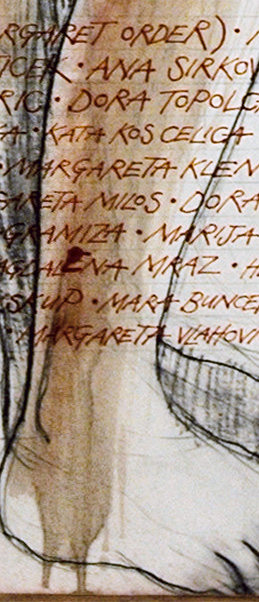 RGARET ORDER) ·
ICEK · ANA SIRKOV
RIC · DORA TOPOLC
GA · KATA KOSCELIGA
· MARGARETA KLEN
GARETA MILOS · DORA
GRANITZA · MARIJA
AGDALENA MRAZ · H
SKUP · MARA BUNCE
· MARGARETA VLAHOVI